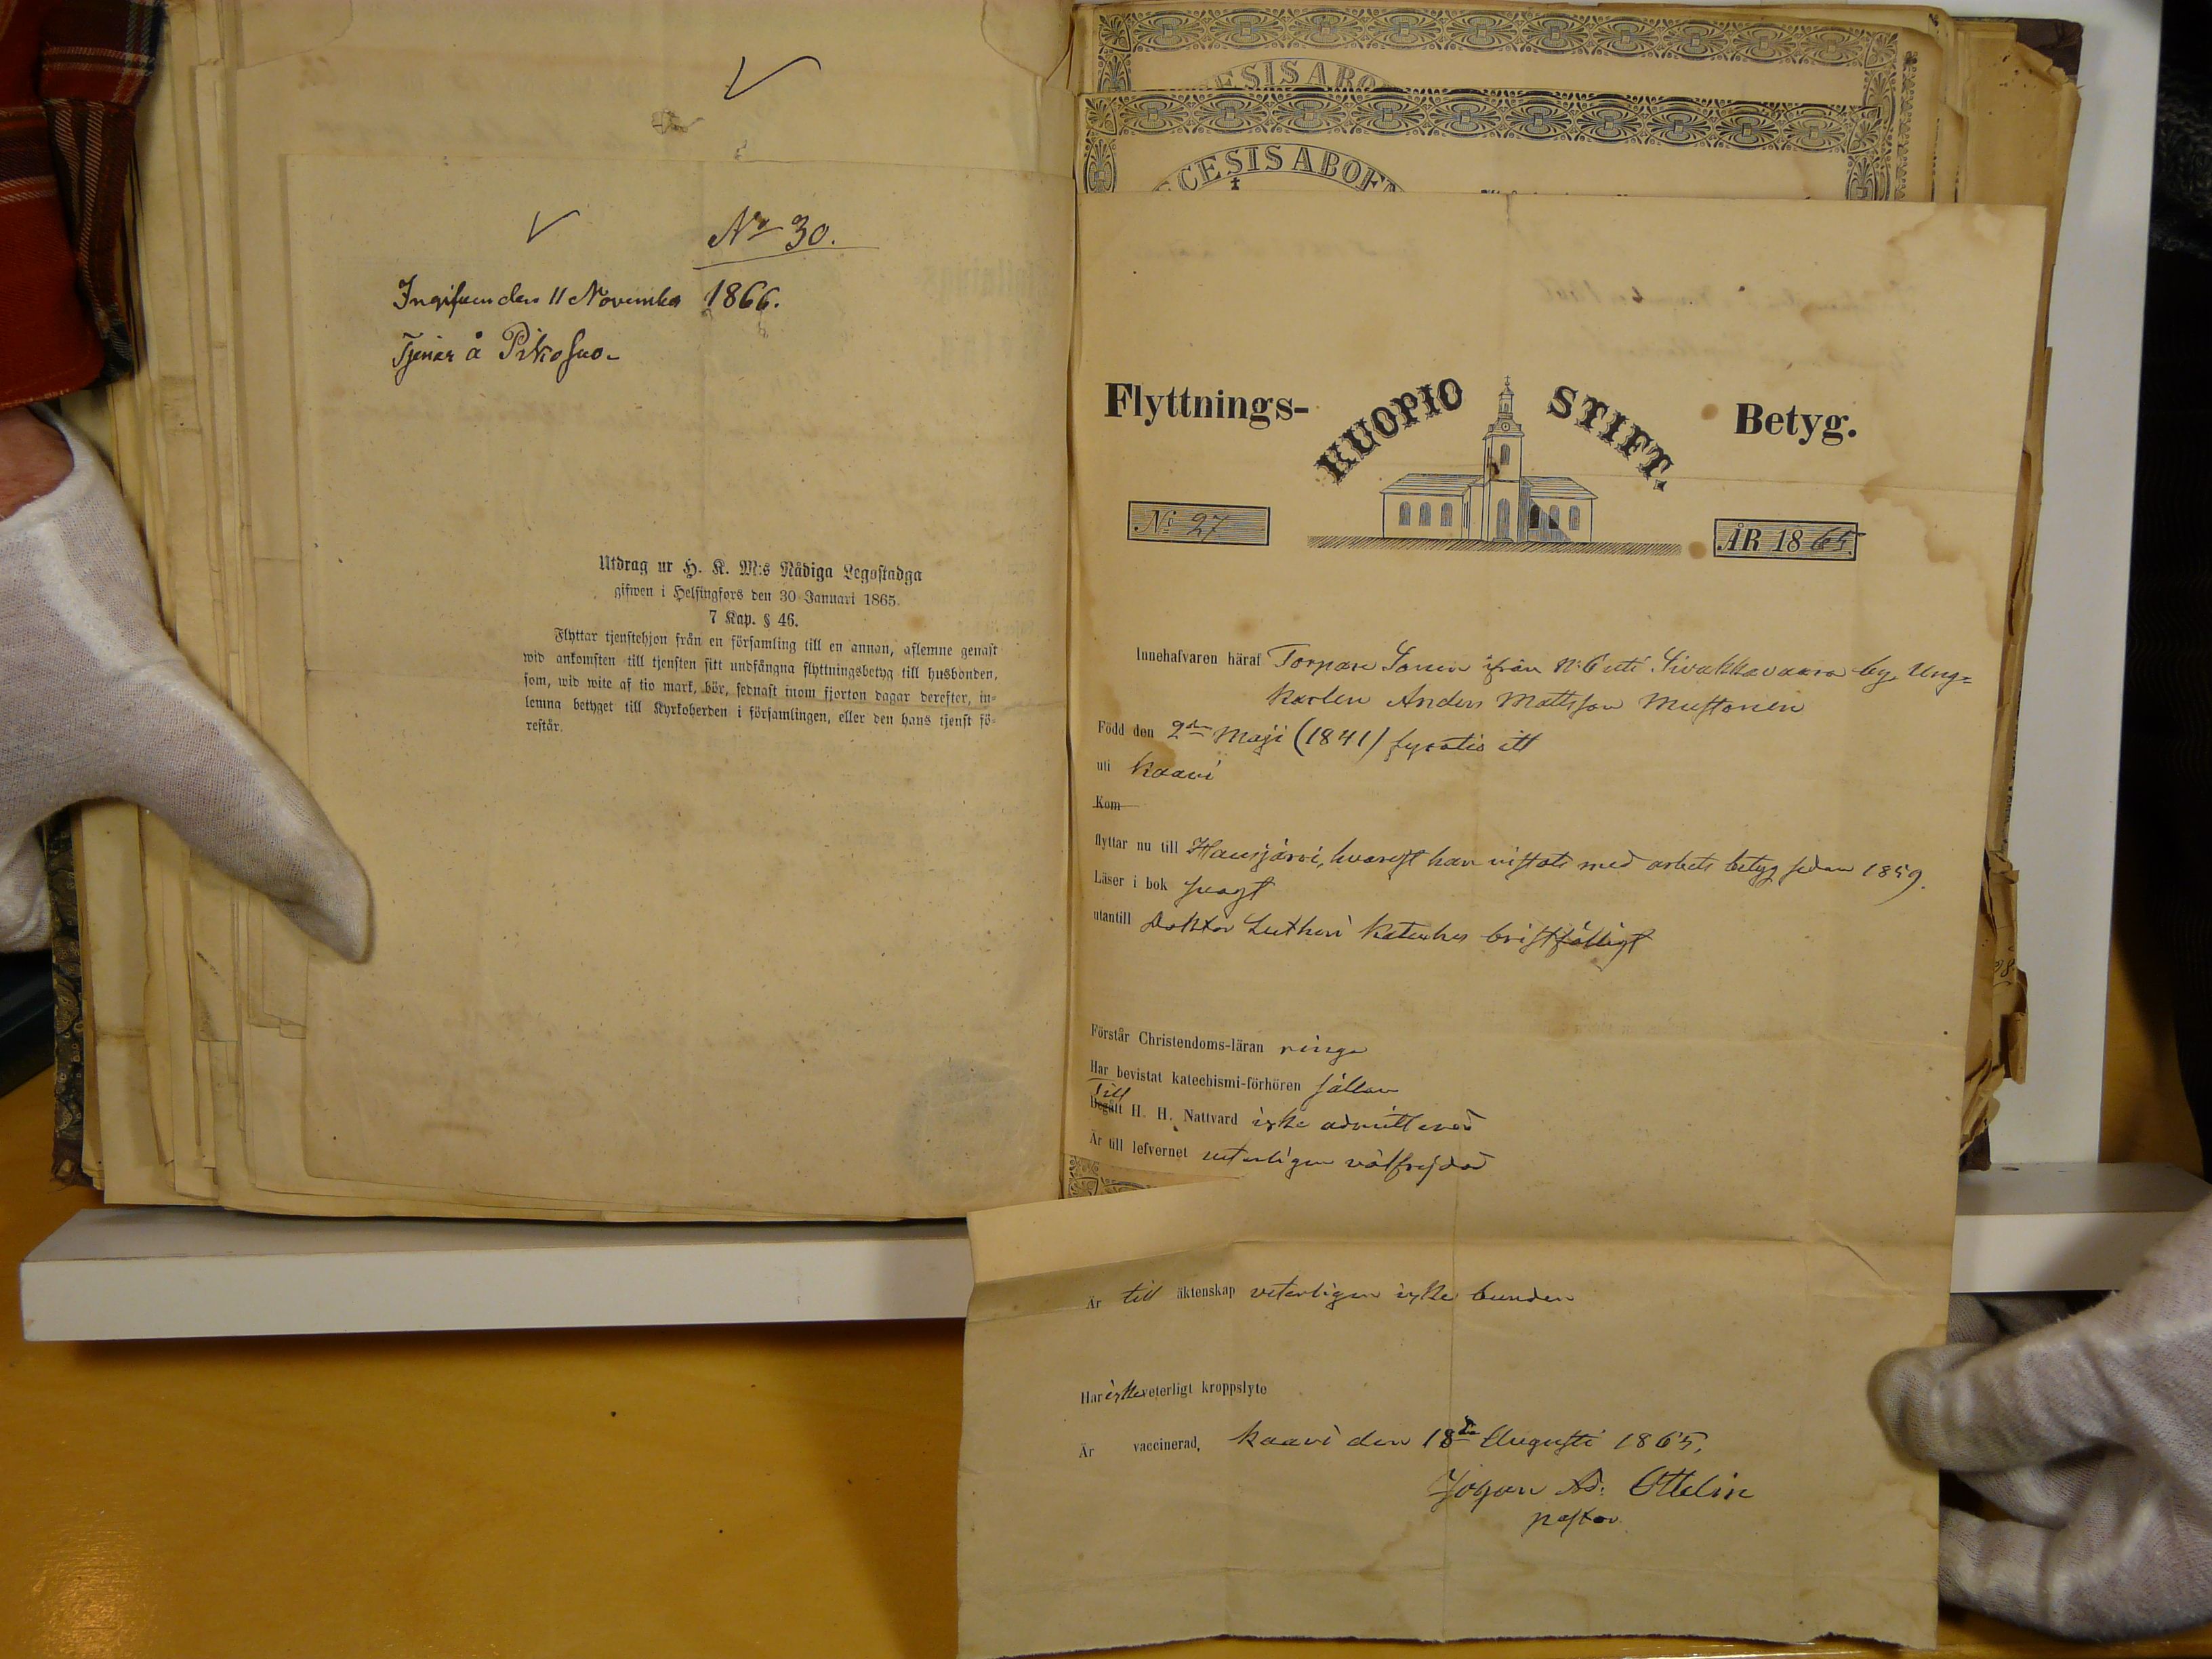 No 30.
Ingifven den 11 November 1866.
Tjenar å Pikosuo
Utdrag ur H. K. M:s Nådiga Legostadga
gifwen i Helsingfors den 30 Januari 1865.
7 Kap. § 46.
Flyttar tjenstehjon från en församling till en annan, aflemne genast
wid ankomsten till tjensten sitt undfångna flyttningsbetyg till husbonden,
som, wid wite af tio mark, bör, sednast inom fjorton dagar derefter, in-
lemna betyget till Kyrkoherden i församlingen, eller den hans tjenst fö-
restår.
ESIS ABO
CESIS ABOE
Flyttnings- KUOPIO STIFT. Betyg.
No 27 ÅR 1865.
Innehafvaren häraf Torpare Sonen ifrån No 6 uti Sivakkavaara by, Ung-
karlen Anders Mattsson Mustonen
Född den 2den Maji (1841) fyratio ett
uti Kaavi
Kom
flyttar nu till Hausjärvi, hvarest han vistats med arbets betyg sedan 1859.
Läser i bok svagt
utantill Doktor Lutheri Kateches bristfälligt
Förstår Christendoms-läran ringa
Har bevistat katechismi-förhören sällan
Till
Begått H. H. Nattvard icke admitterad
Är till lefvernet veterligen välfrejdad
Är till äktenskap veterligen icke bunden
Har icke veterligt kroppslyte
Är vaccinerad, Kaavi den 18de Augusti 1865.
Johan Ad. Ottelin
pastor